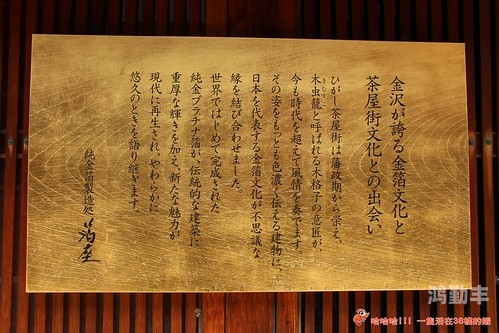 金沢が誇る金箔文化と
茶屋街文化との出会い
ひがし茶屋街は藩政期から栄え、
きむすこ
木虫籠と呼ばれる木格子の意匠が、
今も時代を超えて風情を奏でます。
その姿をもっとも色濃く伝える建物に、
日本を代表する金箔文化が不思議な
縁を結び合わせました。
世界ではじめて完成された
純金プラチナ箔が、伝統的な建築に
重厚な輝きを加え、新たな魅力が
現代に再生され、やわらかに
悠久のときを語り継ぎます
純金箔製造処 箔座
鸿勤丰
哈哈哈!!! 一隻活在38樓的貓